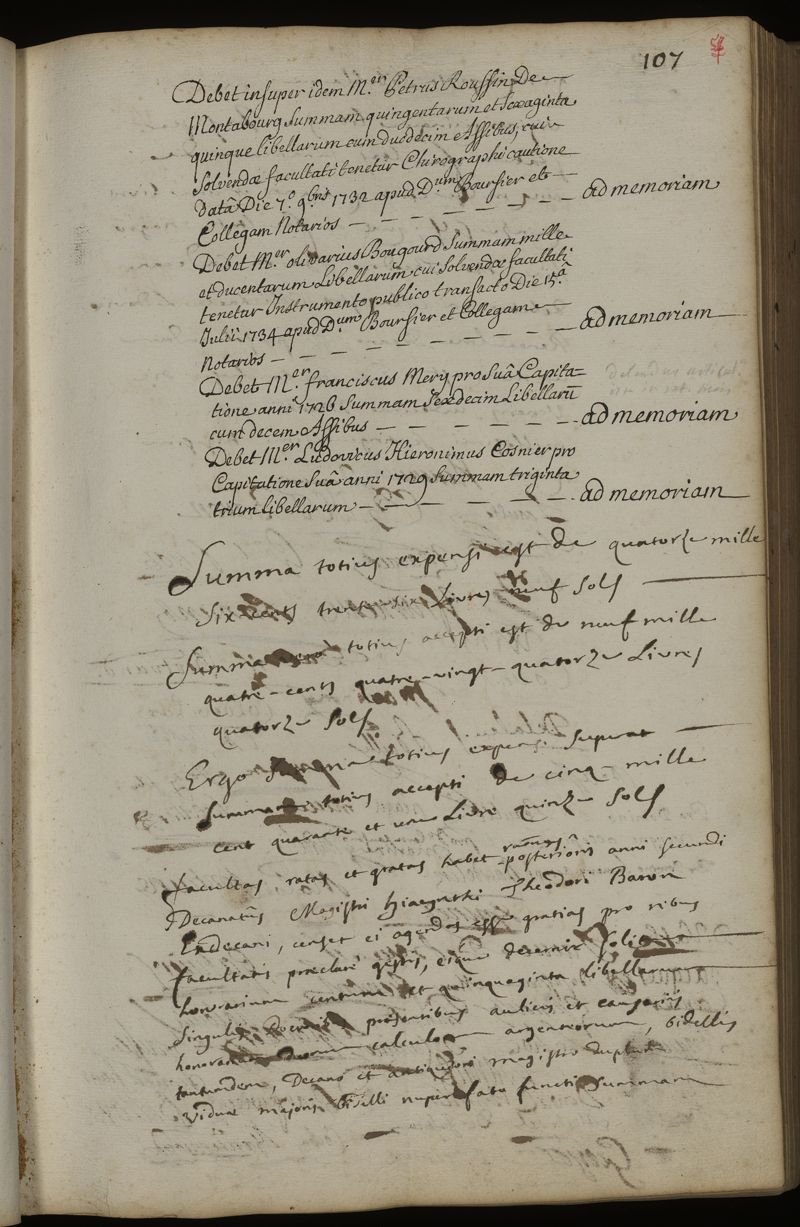 107
Debet insuper idem M.er Petrus Roussin De
Montabourg Summam quingentarum et Sexaginta
quinque libellarum cum duodecim Assibus, cui
Solvendæ facultati tenetur Chirographi cautione
datâ Die 7.a 9bris 1732 apud D.um Boursier et
Collegam Notarios — — — — — — — ad memoriam
Debet M.er olivarius Bougourd Summam mille
et ducentarum Libellarum cui Solvendæ facultati
tenetur Instrumento publico transacto Die 15.a
Julii 1734 apud D.um Boursier et Collegam
Notarios — — — — — — — — ad memoriam
Debet M.er franciscus Mery pro Suâ Capita=
tione anni 1726 Summam Sexdecim Libellarū
cum decem Assibus — — — — — ad memoriam
Debet M.er Ludovicus Hieronimus Cosnier pro
Capitatione Suâ anni 1729 Summam triginta
trium libellarum — — — — — — ad memoriam
Summa totius expensi est de quatorze mille
Six cents trente six Livres neuf Sols
Summa vero totius accepti est de neuf mille
quatre-cents quatre-vingt-quatorze Livres
quatorze Sols
Ergo Summa totius expensi superat
Summam totius accepti de cinq mille
cent quarante et une Livre quinze Sols
facultas ratas et gratas habet raōnes posterioris anni secundi
Decanatûs Magistri Hiacynthi Theodori Baron
Exdecani, censet ei agendas esse gratias pro rebus
facultatis præclare gestis, eique decernit solitum
honorarium centum et quinquaginta libellarum
singulis præsentibus aulicis et causariis
honorarium duorum calculorum argenteorum, bidellis
tantundem, Decano et antiquiori magistro duplum
viduæ majoris bidelli nuper fato functi Summam